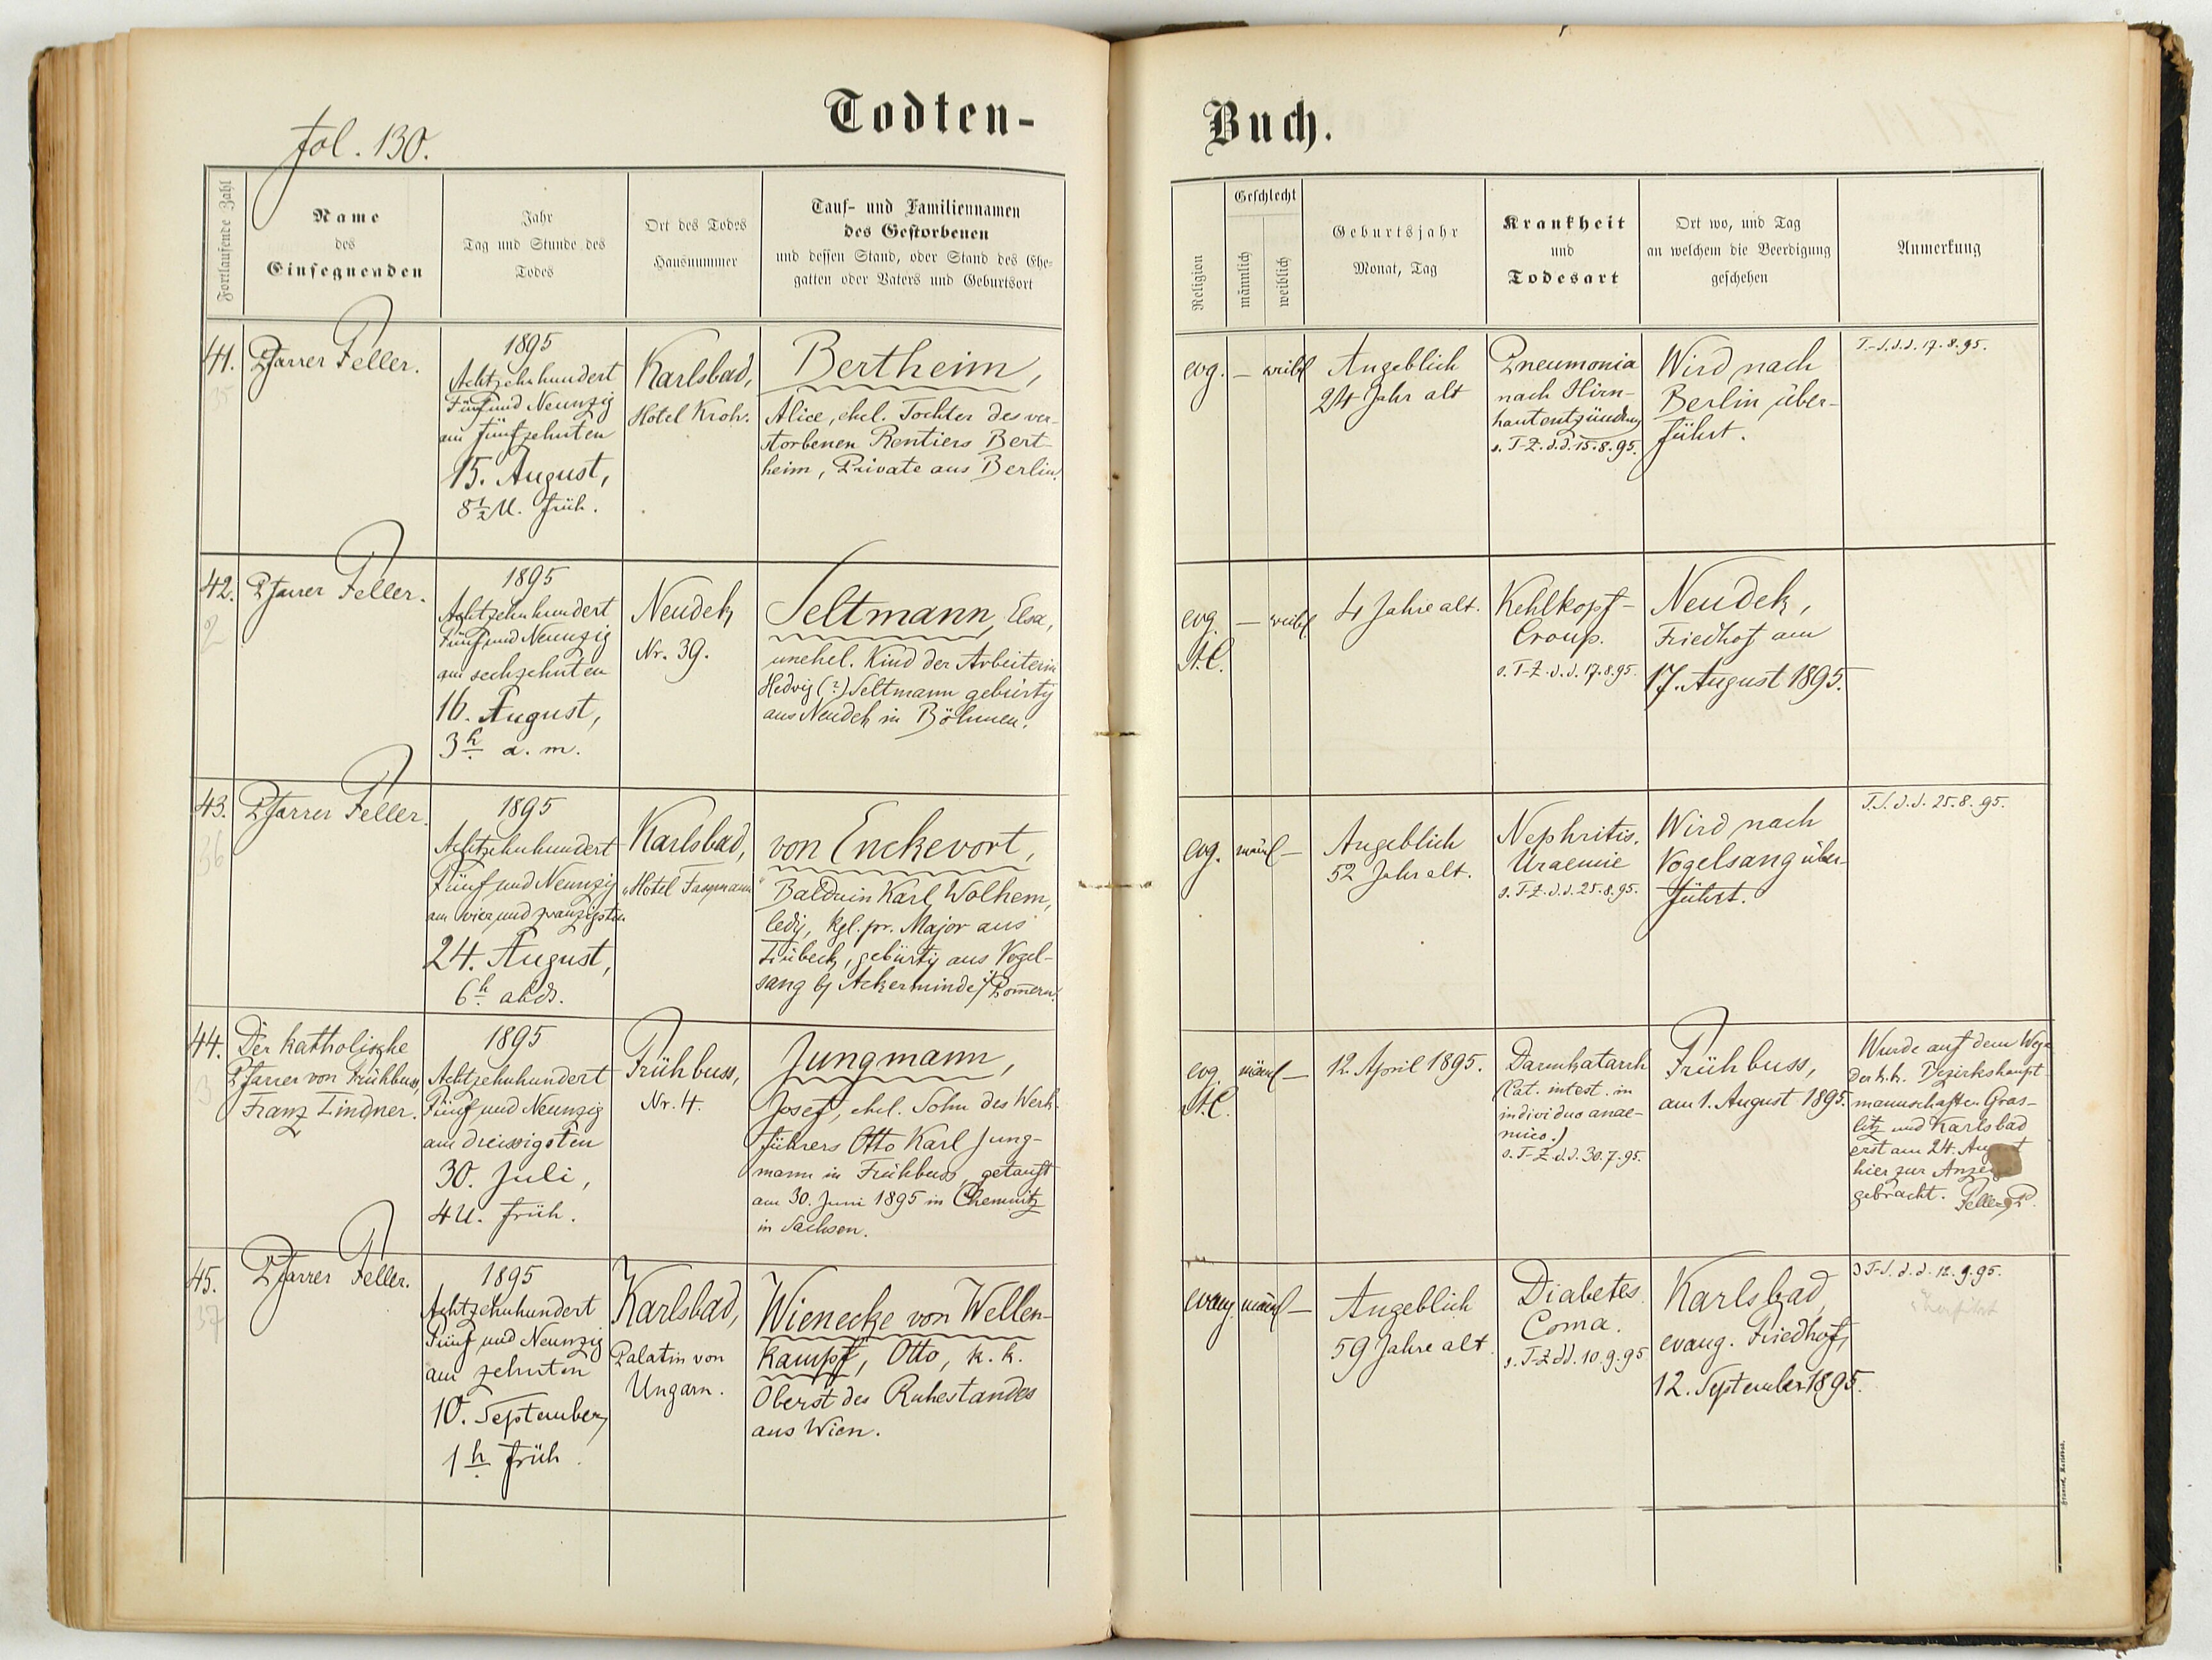 fol. 130.
Todten-
Fortlaufende Zahl
Name
des
Einsegnenden
Jahr
Tag und Stunde des
Todes
Ort des Todes
Hausnummer
Tauf- und Familiennamen
des Gestorbenen
und dessen Stand, oder Stand des Ehe-
gatten oder Vaters und Geburtsort
41.
35
Pfarrer Feller.
1895
Achtzehnhundert
Fünf und Neunzig
am fünfzehnten
15. August,
8½ U. früh.
Karlsbad,
Hotel Kroh.
Bertheim,
Alice, ehel. Tochter des ver-
storbenen Rentiers Bert-
heim, Private aus Berlin.
42.
2
Pfarrer Feller.
1895
Achtzehnhundert
Fünf und Neunzig
am sechzehnten
16. August,
3h a. m.
Neudek
Nr. 39.
Seltmann, Elsa,
unehel. Kind der Arbeiterin
Hedwig (?) Seltmann gebürtig
aus Neudek in Böhmen.
43.
36
Pfarrer Feller.
1895
Achtzehnhundert
Fünf und Neunzig
am vier und zwanzigsten
24. August,
6h abds.
Karlsbad,
"Hotel Fassmann"
von Enckevort,
Balduin Karl Wolhem,
ledig, kgl. pr. Major aus
Lübeck, gebürtig aus Vogel-
sang bj Ackerminde i/ Pomern.
44.
3
Der katholische
Pfarrer von Frühbuss,
Franz Lindner.
1895
Achtzehnhundert
Fünf und Neunzig
am dreissigsten
30. Juli,
4 U. früh.
Frühbuss,
Nr. 4.
Jungmann,
Josef, ehel. Sohn des Werk-
führers Otto Karl Jung-
mann in Frühbuss, getauft
am 30. Juni 1895 in Chemnitz
in Sachsen.
45.
37
Pfarrer Feller.
1895
Achtzehnhundert
Fünf und Neunzig
am zehnten
10. September,
1h früh.
Karlsbad,
Palatin von
Ungarn.
Wienecke von Wellen-
kampf, Otto, k. k.
Oberst des Ruhestandes
aus Wien.
Buch.
Religion
Geschlecht
männlich
weiblich
Geburtsjahr
Monat, Tag
Krankheit
und
Todesart
Ort wo, und Tag
an welchem die Beerdigung
geschehen
Anmerkung
evg.
—
weibl
Angeblich
24 Jahr alt
Pneumonia
nach Hirn-
hautentzündung
s. T-Z. d.d. 15.8.95.
Wird nach
Berlin über-
führt.
T.-S. d.d. 17.8.95.
evg.
A.C.
—
weibl.
4 Jahre alt.
Kehlkopf-
Croup.
s. T-Z. d.d. 17.8.95.
Neudek,
Friedhof am
17. August 1895.
evg.
männl
—
Angeblich
52 Jahr alt.
Nephritis.
Uraemie
s. T-Z. d.d. 25.8.95.
Wird nach
Vogelsang über-
führt.
T.S. d.d. 25.8.95.
evg
A.C.
männl
—
12. April 1895.
Darmkatarrh
(Cat. intest. in
individuo anae-
mico.)
s. T-Z d.d. 30.7.95.
Frühbuss,
am 1. August 1895.
Wurde auf dem Wege
der k.k. Bezirkshaupt-
mannschaften Gras-
litz und Karlsbad
erst am 24. August
hier zur Anzeige
gebracht. Feller, P.
evang.
männl
—
Angeblich
59 Jahre alt.
Diabetes.
Coma.
s. T-Z dd. 10.9.95
Karlsbad,
evang. Friedhof,
12. September 1895.
T-S. d.d. 12.9.95.